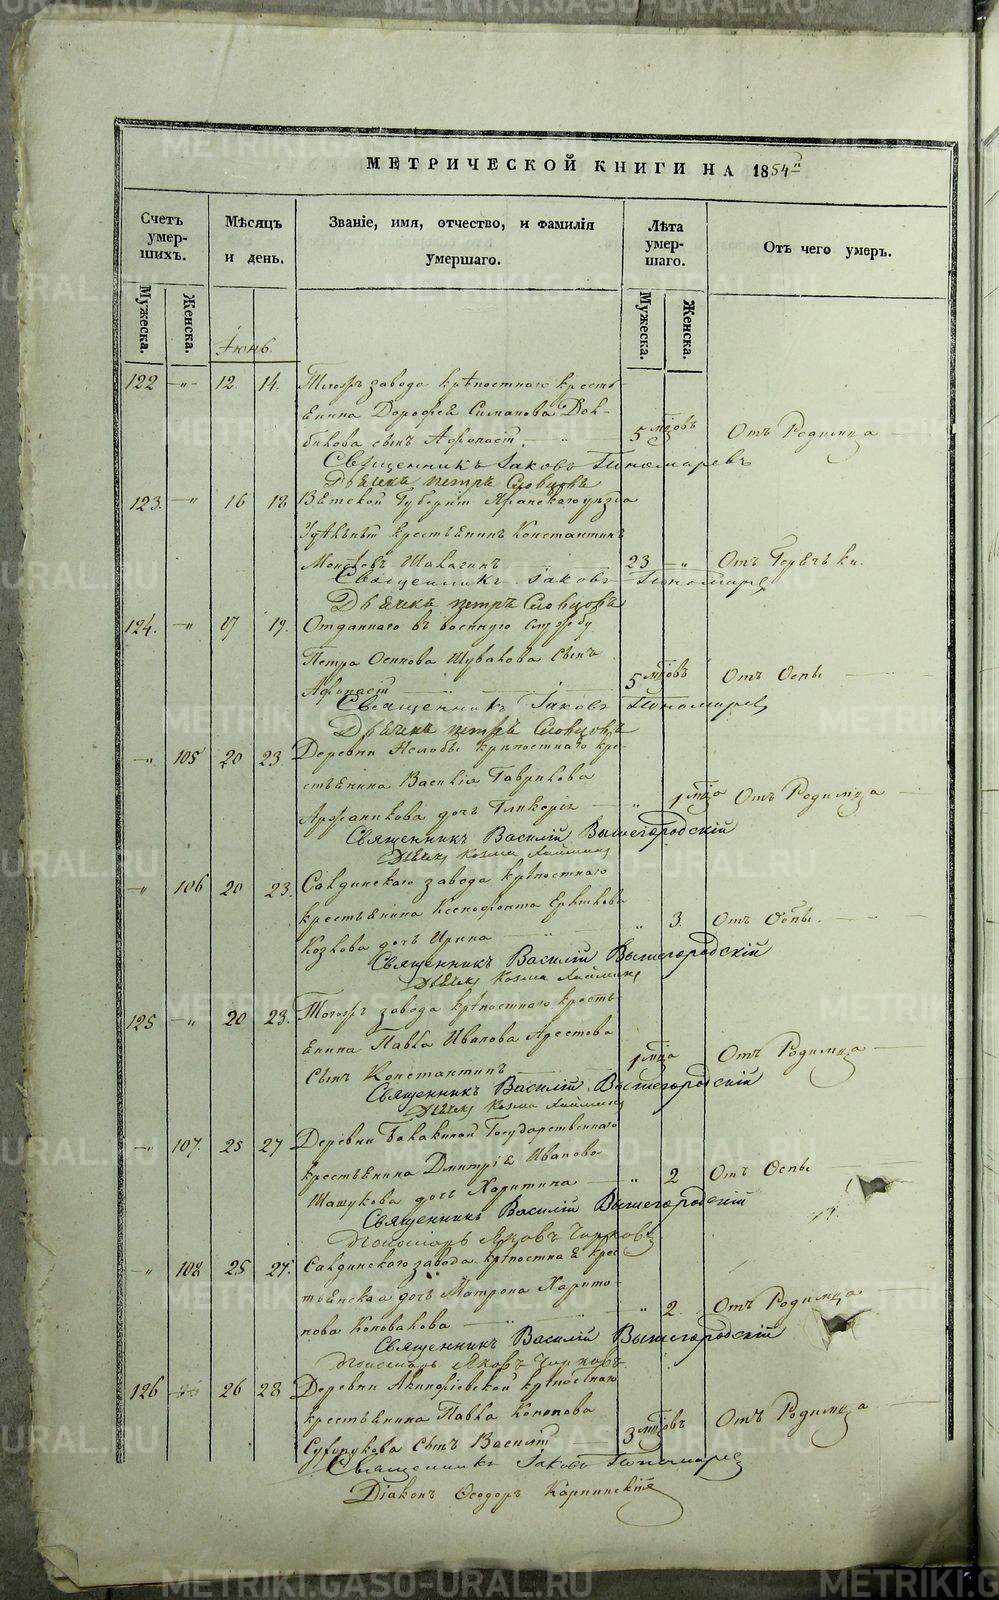 МЕТРИЧЕСКОЙ КНИГИ НА 1854й
Счетъ умер-шихъ.
Мѣсяцъ и день.
Званіе, имя, отчество, и фамилія умершаго.
Лѣта умер-шаго.
Отъ чего умеръ.
Мужеска.
Женска.
Мужеска.
Женска.
Іюнь.
122 — „ — 12. 14. Тогожъ завода крѣпостнаго кресть-
янина Дорофея Симанова
сынъ Афонасій. 5 мѣцовъ Отъ Родимца
Священникъ Іаковъ Пономаревъ
Дьячекъ Петръ Словцовъ
123. — „ 16 18 Вятской Губерніи Яранскаго уѣзда
Удѣльный крестьянинъ Константинъ
23 — „ Отъ Горячки.
Священникъ Іаковъ Пономарев
Дьячекъ Петръ Словцовъ
124. — „ 17 19. Отданнаго въ военную службу
Петра Осипова Шувалова сынъ
Афонасій 5 мѣцовъ Отъ Оспы
Священникъ Іаковъ Пономарев
Дьячекъ Петръ Словцовъ
— „ 105 20 23 Деревни крѣпостнаго кре-
стьянина Василія Гаврилова
дочь Гликерія „ 1 мѣца Отъ Родимца
Священникъ Василій Вышегородскій
Дьячекъ Козма
„ 106 20 23. Салдинскаго завода крѣпостнаго
крестьянина Ксенофонта
Козлова дочь Ирина „ 3. Отъ Оспы.
Священникъ Василій Вышегородскій
Дьячекъ Козма
125 — „ 20 23. Тогожъ завода крѣпостнаго кресть-
янина Павла Иванова Арестова
сынъ Константинъ 1 мѣца Отъ Родимца
Священникъ Василій Вышегородскій
Дьячекъ Козма
— „ 107. 25 27 Деревни Балакиной Государственнаго
крестьянина Дмитрія Иванова
дочь Харитина „ 2 Отъ Оспы
Священникъ Василій Вышегородскій
Пономарь Яковъ
— „ 108 25 27. Салдинскаго завода крѣпостная крес-
тьянская дочь Матрона Харито-
нова Коновалова „ 2 Отъ Родимца
Священникъ Василій Вышегородскій
Пономарь Яковъ
126 26 28 Деревни Акинфіевской крѣпостнаго
крестьянина Павла Кононова
сынъ Василій 3 мѣцовъ Отъ Родимца
Священникъ Іаковъ Пономарев
Діаконъ Ѳеодоръ Карпинскій